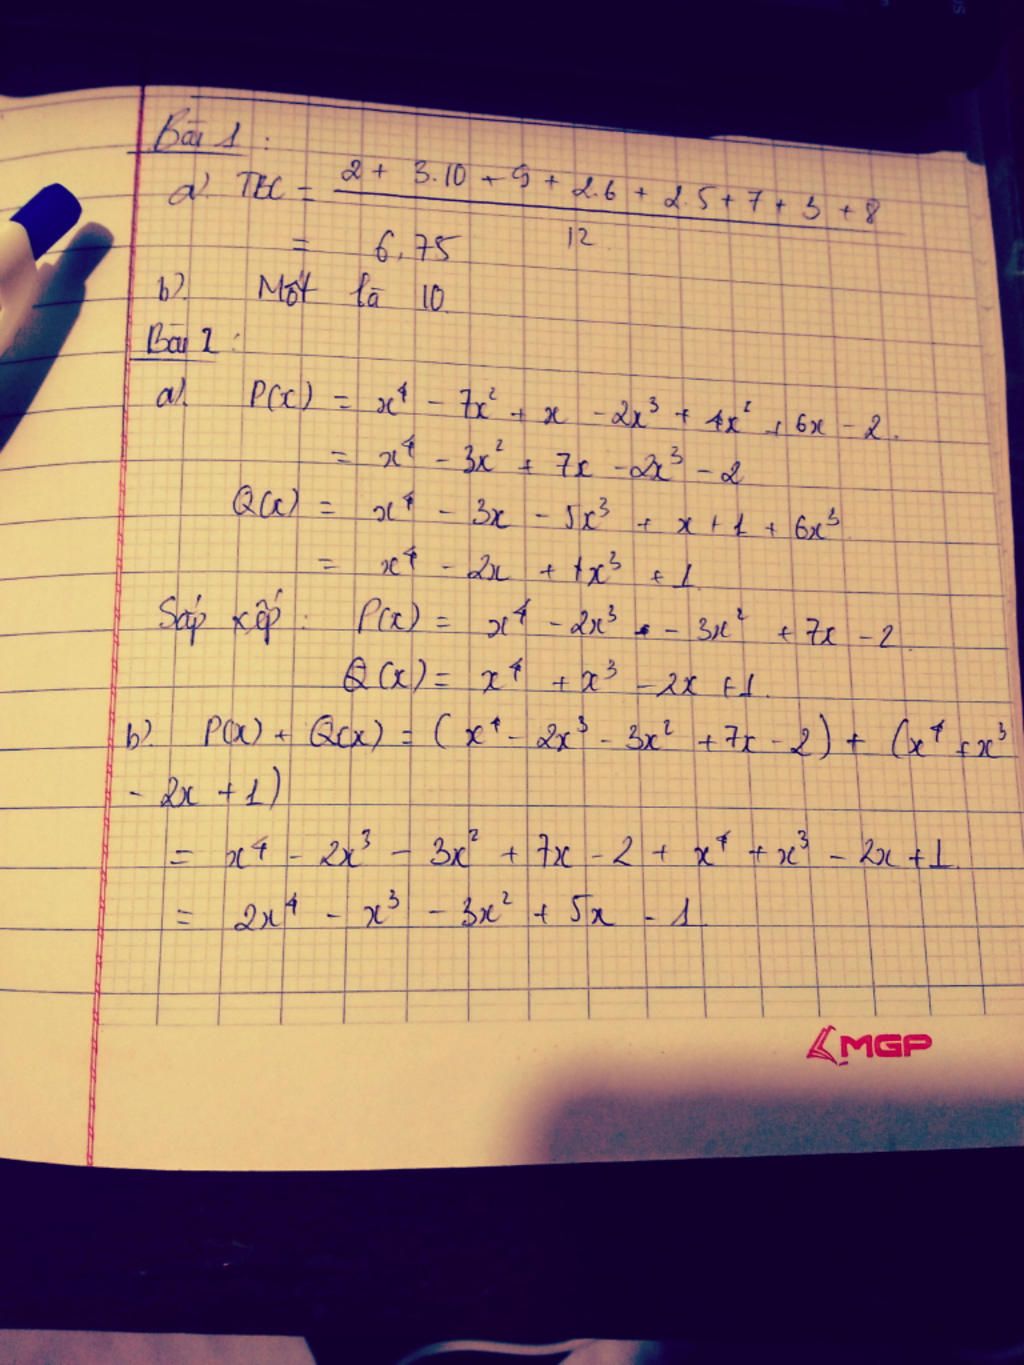 Bài 1 :
a) TBC = (2 + 3.10 + 9 + 2.6 + 2.5 + 7 + 3 + 8) / 12
= 6,75
b) Mốt là 10.
Bài 2 :
a) P(x) = x⁴ - 7x² + x - 2x³ + 4x² + 6x - 2.
= x⁴ - 3x² + 7x - 2x³ - 2
Q(x) = x⁴ - 3x - 5x³ + x + 1 + 6x³
= x⁴ - 2x + 1x³ + 1
Sắp xếp : P(x) = x⁴ - 2x³ - 3x² + 7x - 2.
Q(x) = x⁴ + x³ - 2x + 1.
b) P(x) + Q(x) = (x⁴ - 2x³ - 3x² + 7x - 2) + (x⁴ + x³
- 2x + 1)
= x⁴ - 2x³ - 3x² + 7x - 2 + x⁴ + x³ - 2x + 1.
= 2x⁴ - x³ - 3x² + 5x - 1
MGP